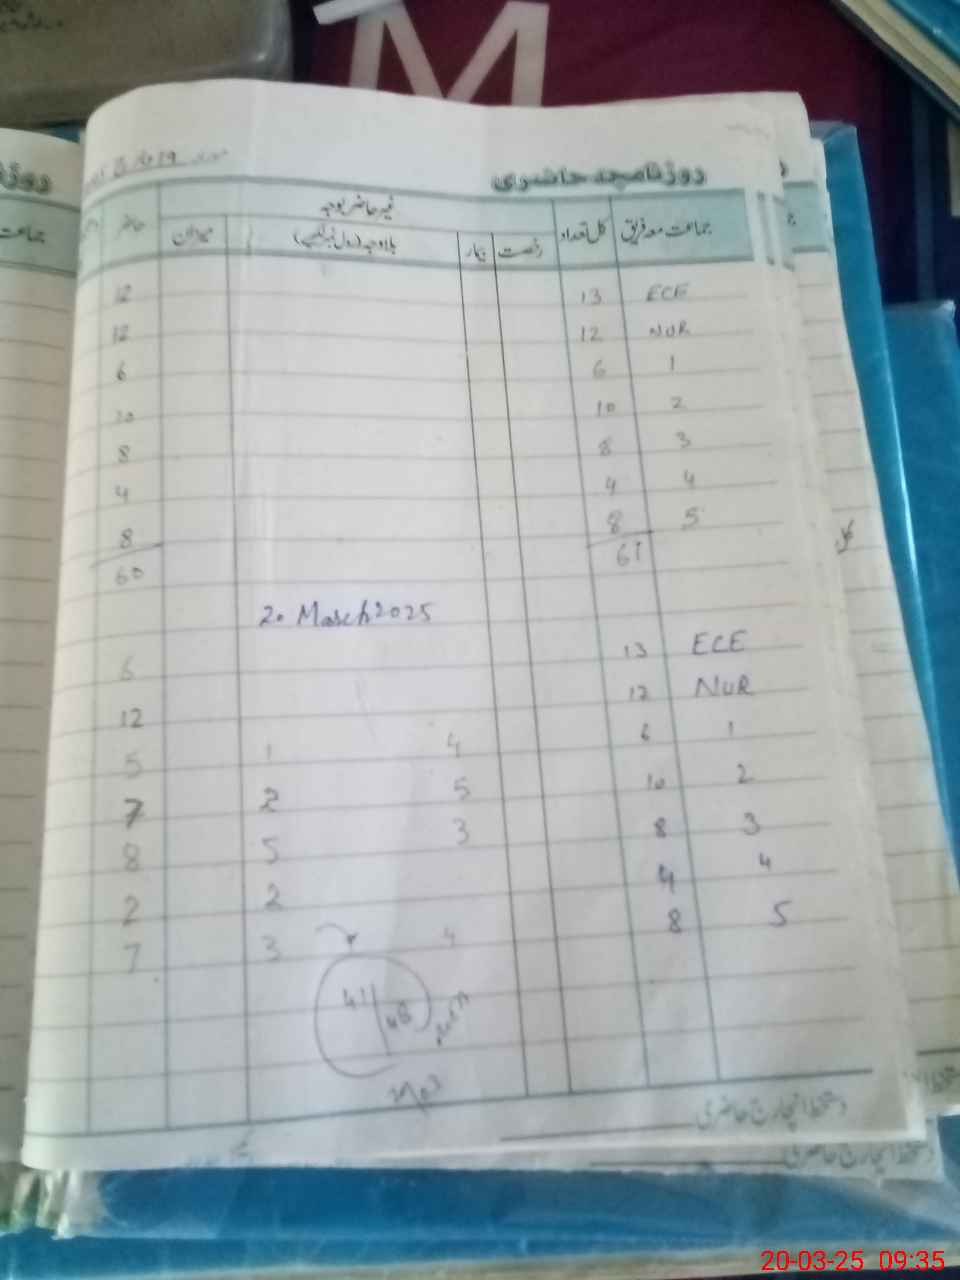 M
روزنامچہ حاضری
جماعت معہ فریق کل تعداد غیر حاضر بوجہ حاضر
رخصت بیمار بلاوجہ (رول نمبر لکھیے) میزان
ECE 13 12
NUR 12 12
1 6 6
2 10 10
3 8 8
4 4 4
5 8 8
61 60
20 March 2025
ECE 13 6
NUR 12 12
1 6 4 1 5
2 10 5 2 7
3 8 3 5 8
4 4 2 2
5 8 4 3 7
41 48
دستخط انچارج حاضری
دستخط انچارج حاضری
20-03-25 09:35